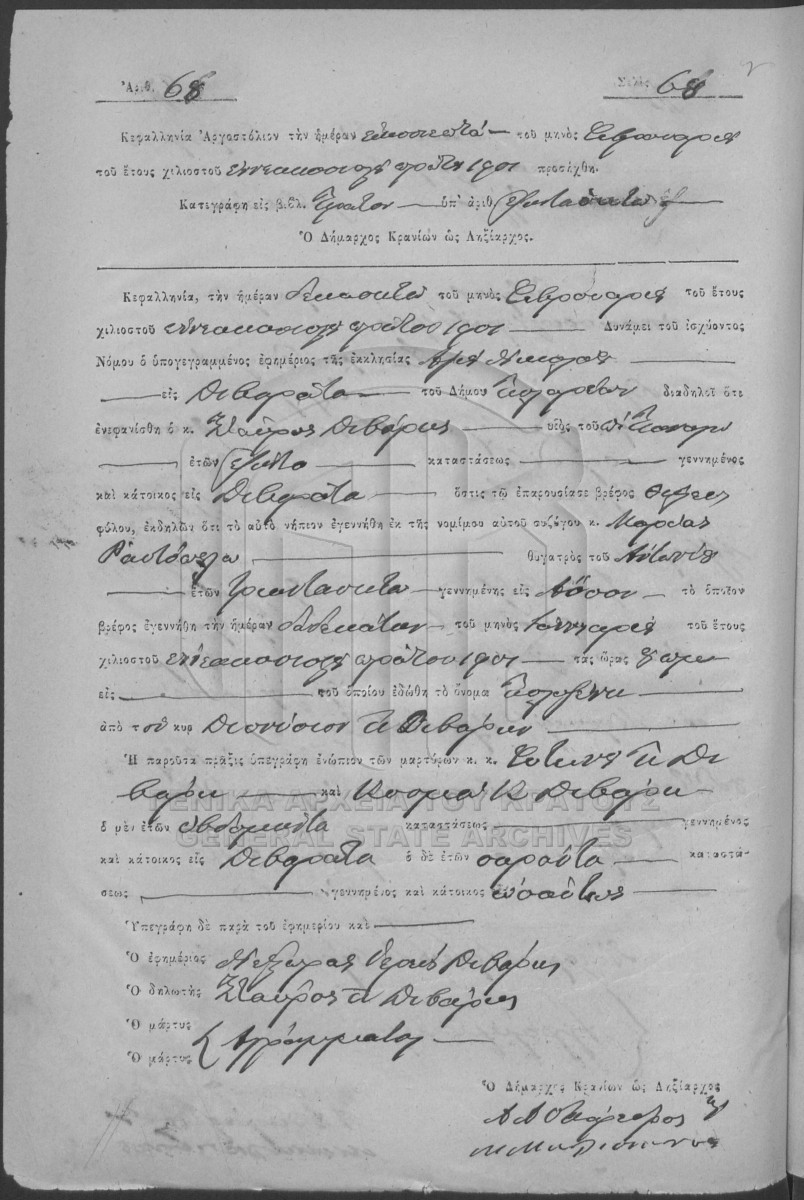 Ἀριθ. 68 Σελὶς 68
Κεφαλληνία Ἀργοστόλιον τὴν ἡμέραν εἰκοστὲπτά τοῦ μηνὸς Φεβρουαρίου
τοῦ ἔτους χιλιοστοῦ ἐννεακοσιοστοῦ πρώτου 1901 προσήχθη.
Κατεγράφη εἰς βιβλ. Πρῶτον ὑπ' ἀριθ. ἑξήντα ὀκτώ
Ὁ Δήμαρχος Κρανίων ὡς Ληξίαρχος.
Κεφαλληνία, τὴν ἡμέραν δεκαοκτώ τοῦ μηνὸς Φεβρουαρίου τοῦ ἔτους
χιλιοστοῦ ἐννεακοσιοστοῦ πρώτου 1901 Δυνάμει τοῦ ἰσχύοντος
Νόμου ὁ ὑπογεγραμμένος ἐφημέριος τῆς ἐκκλησίας Ἁγίου Νικολάου
εἰς Διβαράτα τοῦ Δήμου διαδηλοῖ ὅτι
ἐνεφανίσθη ὁ κ. Σταῦρος Διβάρης υἱὸς τοῦ
ἐτῶν ἑξήντα καταστάσεως γεννημένος
καὶ κάτοικος εἰς Διβαράτα ὅστις τῷ ἐπαρουσίασε βρέφος θήλεος
φύλου, ἐκδηλῶν ὅτι τὸ αὐτὸ νήπιον ἐγεννήθη ἐκ τῆς νομίμου αὐτοῦ συζύγου κ. Μαρίας
Ραυτοπούλου θυγατρὸς τοῦ Ἀντωνίου
ἐτῶν τριανταοκτώ γεννημένης εἰς Ἄσσον τὸ ὁποῖον
βρέφος ἐγεννήθη τὴν ἡμέραν δωδεκάτην τοῦ μηνὸς Ἰαννουαρίου τοῦ ἔτους
χιλιοστοῦ ἐννεακοσιοστοῦ πρώτου 1901 τὰς ὥρας 8 πμ
εἰς τοῦ ὁποίου ἐδώθη τὸ ὄνομα Πολυξένη
ἀπὸ τὸν κυρ Διονύσιον Π Διβάρην
Ἡ παροῦσα πρᾶξις ὑπεγράφη ἐνώπιον τῶν μαρτύρων κ. κ. Φωτεινοῦ Π Δι
βάρη καὶ Κοσμᾶ Κ Διβάρη
ὁ μὲν ἐτῶν ἑβδομῆντα καταστάσεως γεννημένος
καὶ κάτοικος εἰς Διβαράτα ὁ δὲ ἐτῶν σαράντα καταστά-
σεως γεννημένος καὶ κάτοικος ὡσαύτως
Ὑπεγράφη δὲ παρὰ τοῦ ἐφημερίου καὶ
Ὁ ἐφημέριος Ἱερεύς Διβάρης
Ὁ δηλωτὴς Σταῦρος Π Διβάρης
Ὁ μάρτυς
Ἀγράμματοι
Ὁ μάρτυς
Ὁ Δήμαρχος Κρανίων ὡς Ληξίαρχος
ΓΕΝΙΚΑ ΑΡΧΕΙΑ ΤΟΥ ΚΡΑΤΟΥΣ
GENERAL STATE ARCHIVES